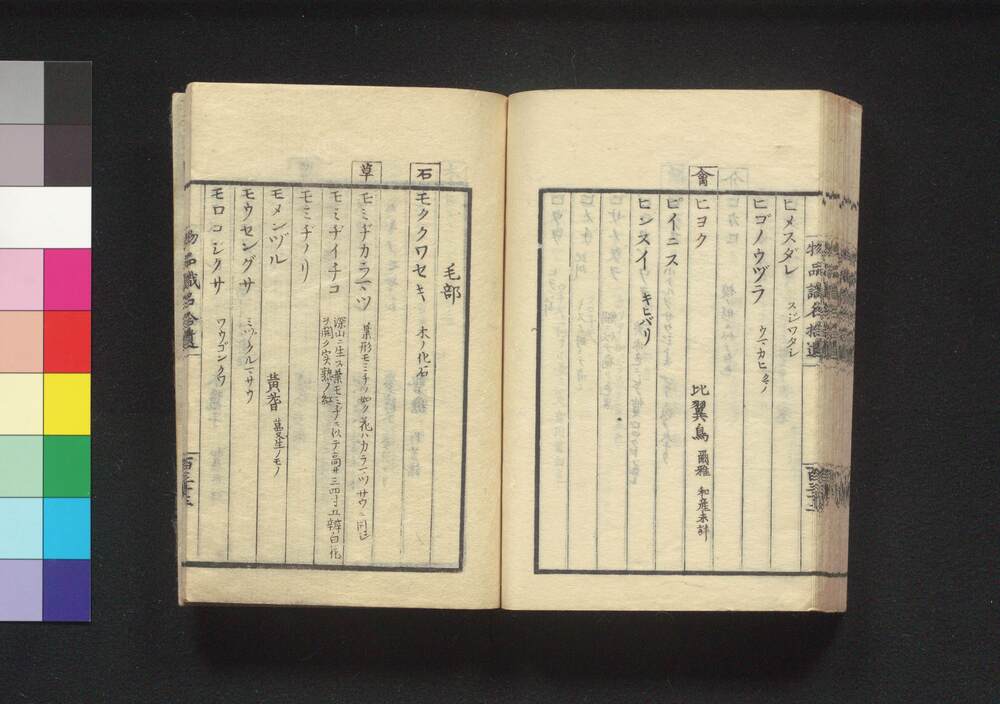 物品識名拾遺
百三十二
ヒメスダレ スジワタシ
ヒゴノウヅラ ウマカヒ
禽
ヒヨク 比翼鳥 爾雅 和産未詳
ヒイニス
ヒンスイ キヒバリ
毛部
石
モククワセキ 木ノ化石
草
モミヂカラマツ 葉形モミヂノ如ク花ハカラマツサウニ同シ
モミヂイチゴ 深山ニ生ス葉モミヂニ似テ高サ三四寸五辨白花
ヲ開ク実熟ノ紅
モミヂノリ
モメンヅル 黄耆
モウセングサ ミヅクルマサウ
モロコシクサ ワウゴンクワ
物品識名拾遺